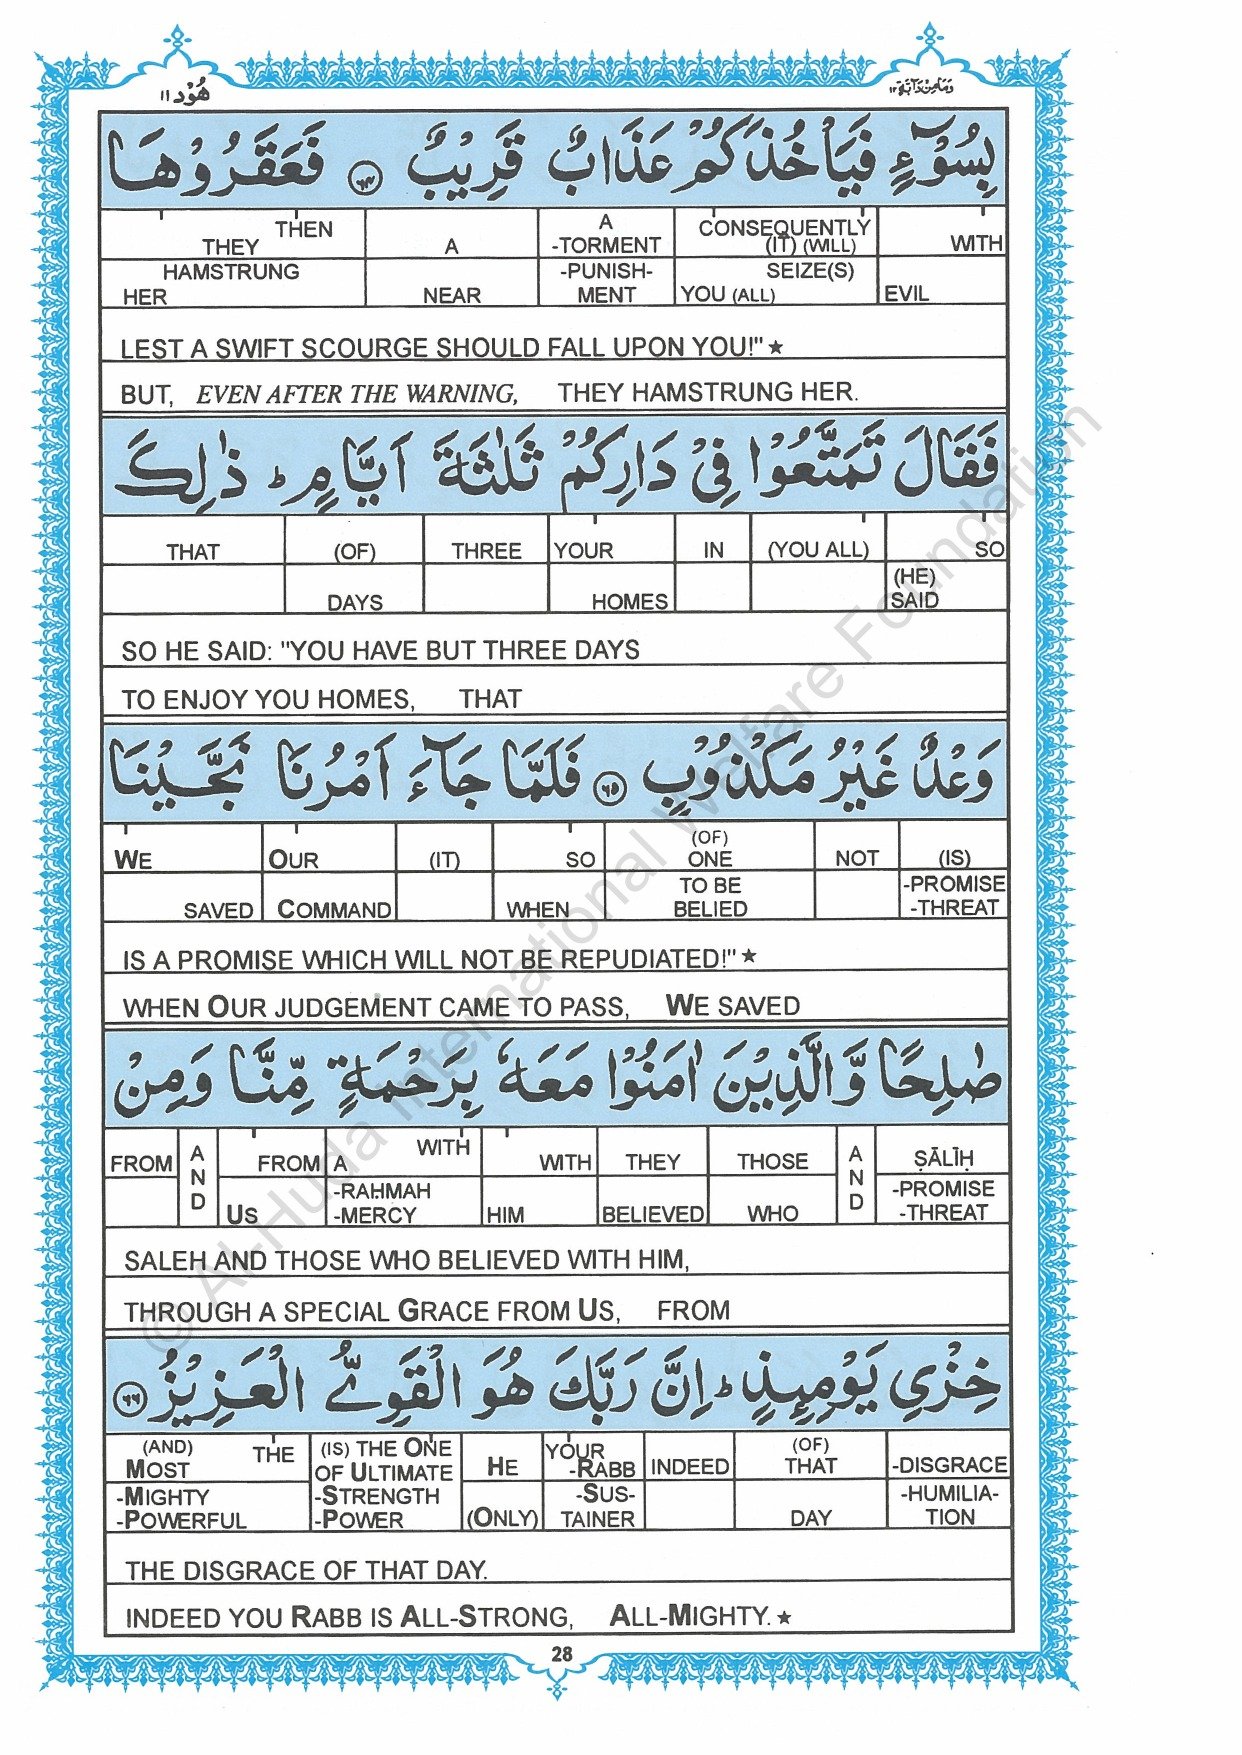 هُوْد ١١
وَمَا مِنْ دَآبَّة ١٢
بِسُوْٓءٍ فَيَاْخُذَكُمْ عَذَابٌ قَرِيْبٌ ٦٤ فَعَقَرُوْهَا
THEN THEY A A -TORMENT CONSEQUENTLY (IT) (WILL) WITH
HAMSTRUNG HER NEAR -PUNISH-MENT SEIZE(S) YOU (ALL) EVIL
LEST A SWIFT SCOURGE SHOULD FALL UPON YOU!"★
BUT, EVEN AFTER THE WARNING, THEY HAMSTRUNG HER.
فَقَالَ تَمَتَّعُوْا فِيْ دَارِكُمْ ثَلٰثَةَ اَيَّامٍ ؕ ذٰلِكَ
THAT (OF) THREE YOUR IN (YOU ALL) SO
DAYS HOMES (HE) SAID
SO HE SAID: "YOU HAVE BUT THREE DAYS
TO ENJOY YOU HOMES, THAT
وَعْدٌ غَيْرُ مَكْذُوْبٍ ٦٥ فَلَمَّا جَآءَ اَمْرُنَا نَجَّيْنَا
WE OUR (IT) SO (OF) ONE NOT (IS)
SAVED COMMAND WHEN TO BE BELIED -PROMISE -THREAT
IS A PROMISE WHICH WILL NOT BE REPUDIATED!"★
WHEN OUR JUDGEMENT CAME TO PASS, WE SAVED
صٰلِحًا وَّالَّذِيْنَ اٰمَنُوْا مَعَهٗ بِرَحْمَةٍ مِّنَّا وَمِنْ
FROM AND FROM A WITH WITH THEY THOSE AND ṢĀLĪḤ
US -RAHMAH -MERCY HIM BELIEVED WHO -PROMISE -THREAT
SALEH AND THOSE WHO BELIEVED WITH HIM,
THROUGH A SPECIAL GRACE FROM US, FROM
خِزْيِ يَوْمِئِذٍ ؕ اِنَّ رَبَّكَ هُوَ الْقَوِيُّ الْعَزِيْزُ ٦٦
(AND) THE MOST (IS) THE ONE OF ULTIMATE HE YOUR -RABB INDEED (OF) THAT -DISGRACE
-MIGHTY -POWERFUL -STRENGTH -POWER (ONLY) -SUS-TAINER DAY -HUMILIA-TION
THE DISGRACE OF THAT DAY.
INDEED YOU RABB IS ALL-STRONG, ALL-MIGHTY.★
28
© Al-Huda International Welfare Foundation